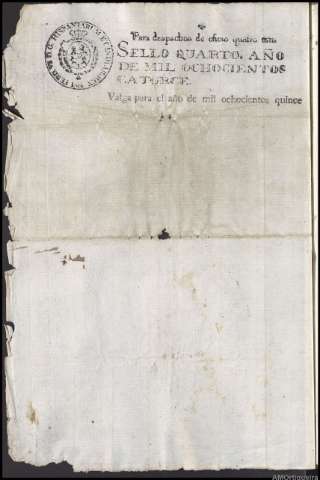 Para despachos de oficio quatro mrs.
SELLO QUARTO, AÑO
DE MIL OCHOCIENTOS
CATORCE.
Valga para el año de mil ochocientos quince
HISPANIARUM REX
D. G.
AMOrtigueira